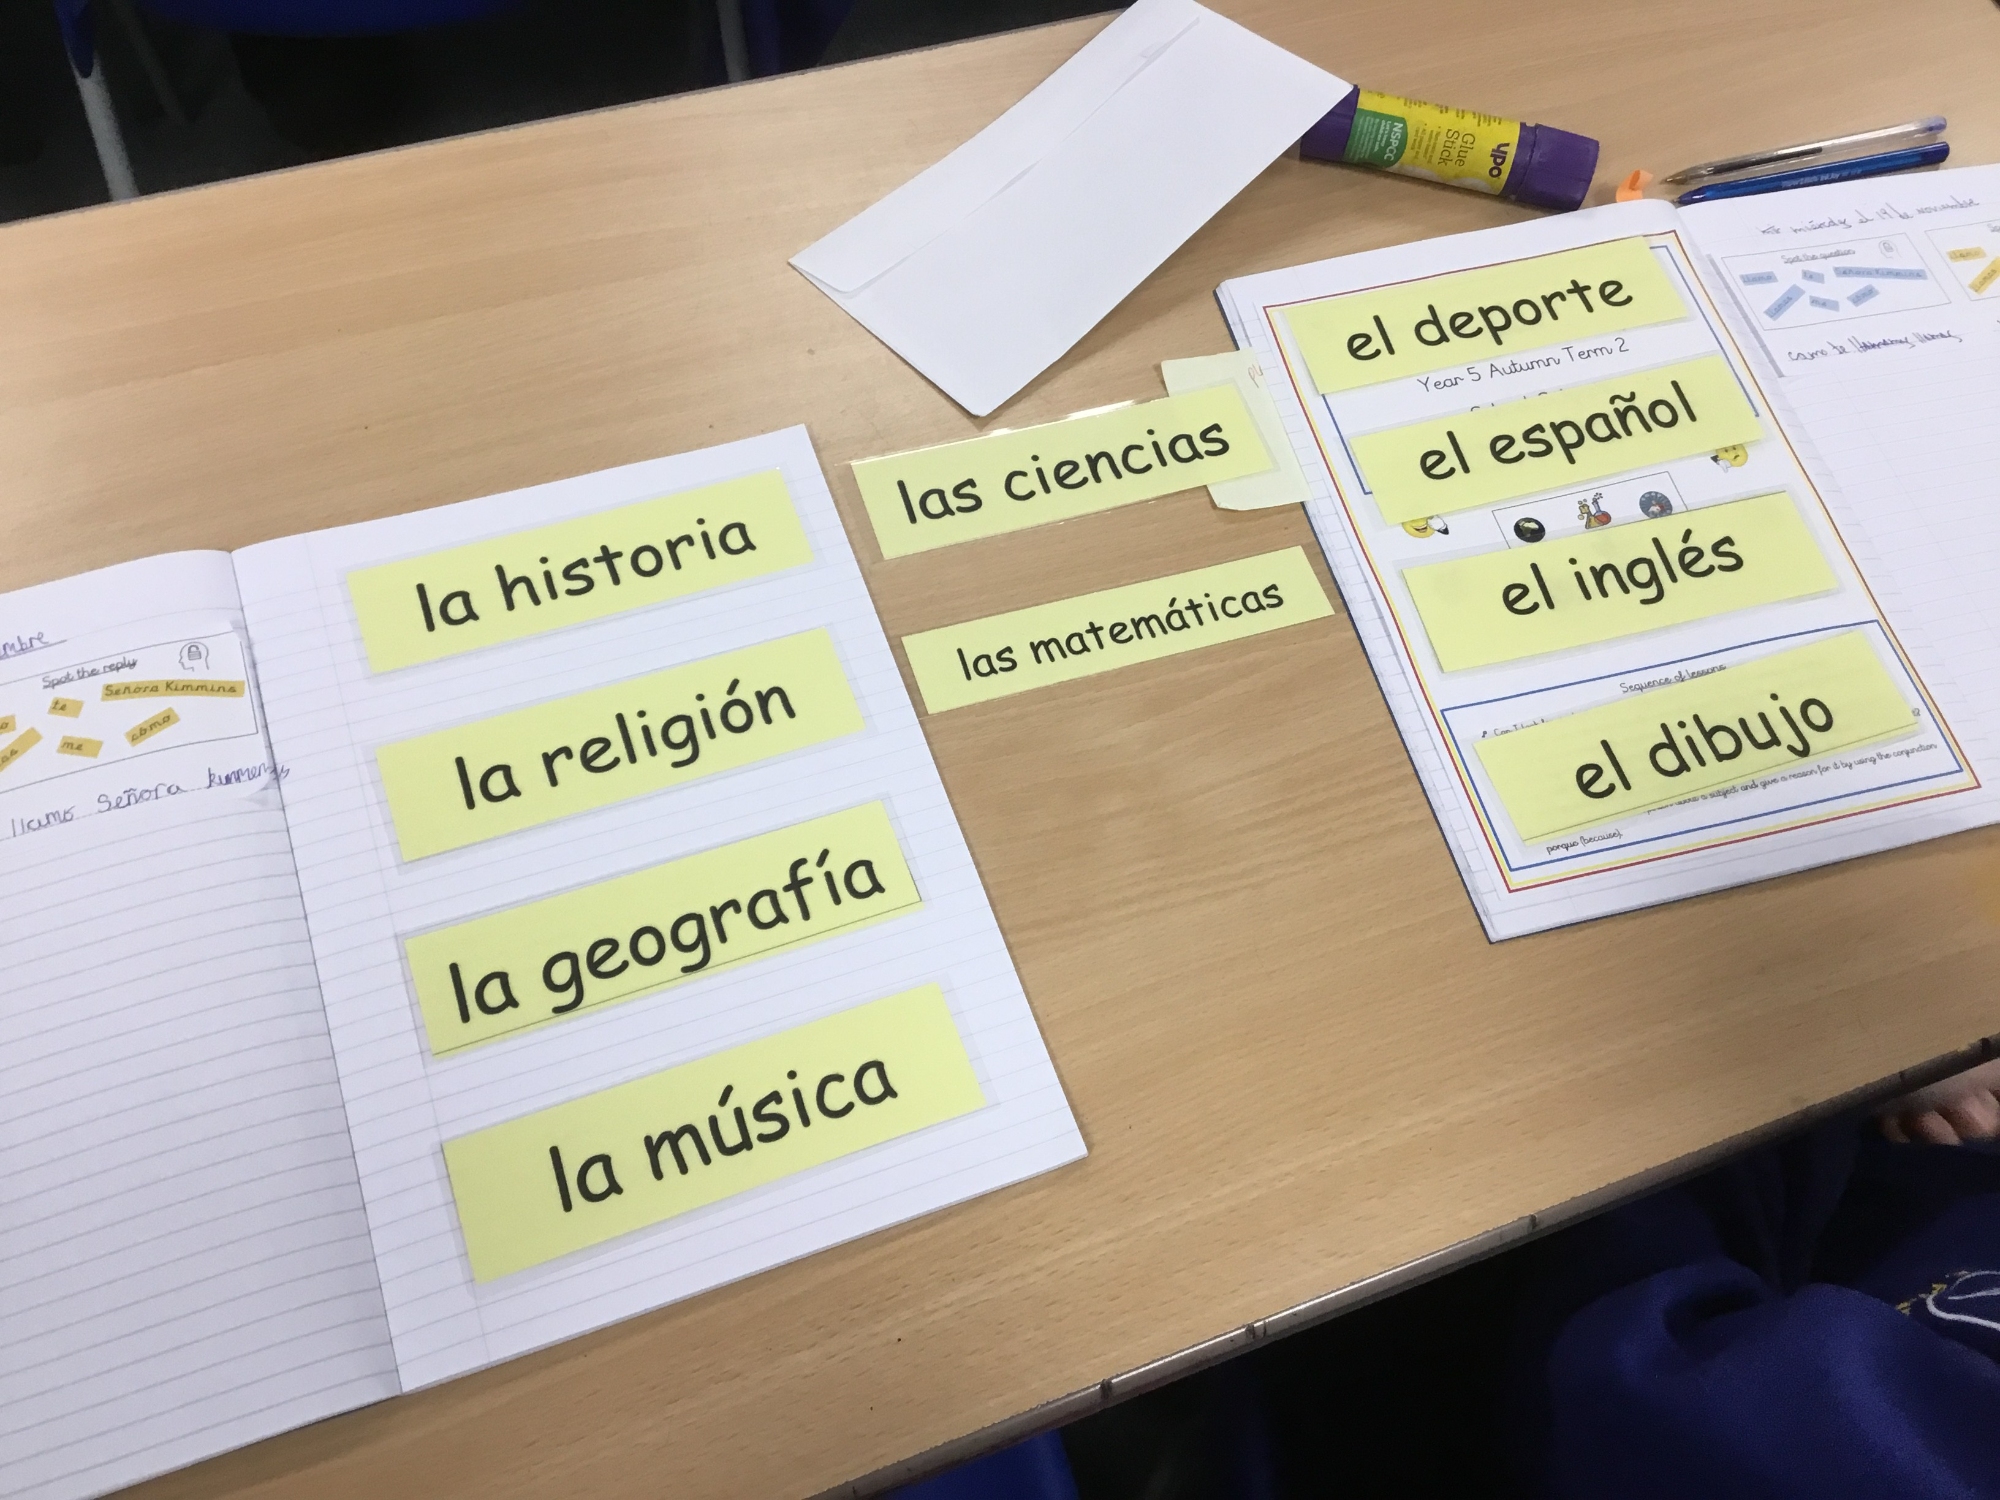 mbre
Spot the reply
te
Señora Kimmins
me
como
llamo Señora
la historia
la religión
la geografía
la música
las ciencias
las matemáticas
ypo
Glue
Stick
NSPCC
el deporte
Year 5 Autumn Term 2
el español
el inglés
Sequence of lessons
el dibujo
a subject and give a reason for it by using the conjunction
porque (because).
el 19 de noviembre
Spot the question
Señora Kimmins
como te llamas